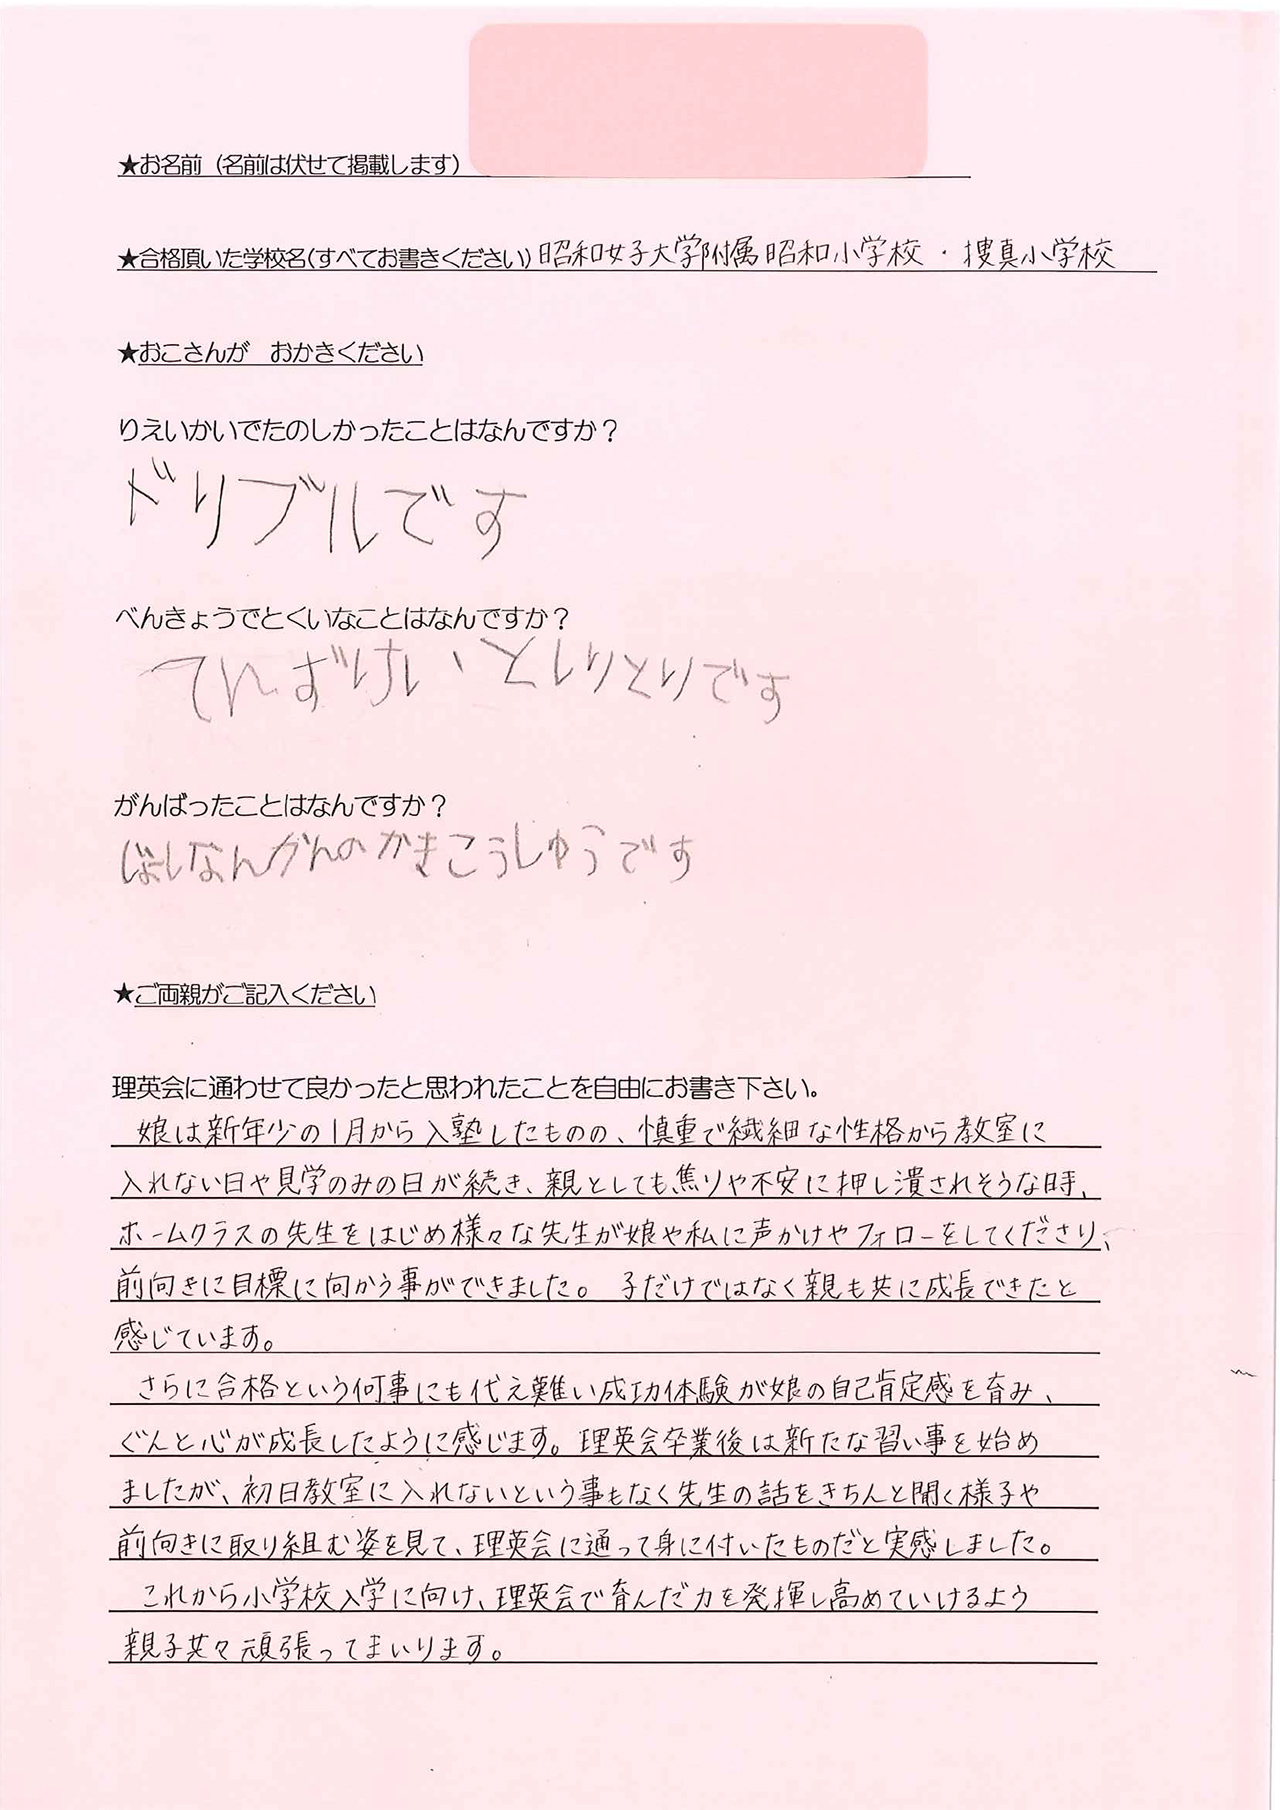 ★お名前（名前は伏せて掲載します）
★合格頂いた学校名(すべてお書きください) 昭和女子大学附属昭和小学校・捜真小学校
★おこさんが　おかきください
りえいかいでたのしかったことはなんですか？
ドリブルです
べんきょうでとくいなことはなんですか？
てんずけいとしりとりです
がんばったことはなんですか？
じょしなんかんのかきこうしゅうです
★ご両親がご記入ください
理英会に通わせて良かったと思われたことを自由にお書き下さい。
娘は新年少の1月から入塾したものの、慎重で繊細な性格から教室に
入れない日や見学のみの日が続き、親としても焦りや不安に押し潰されそうな時、
ホームクラスの先生をはじめ様々な先生が娘や私に声かけやフォローをしてくださり、
前向きに目標に向かう事ができました。子だけではなく親も共に成長できたと
感じています。
さらに合格という何事にも代え難い成功体験が娘の自己肯定感を育み、
ぐんと心が成長したように感じます。理英会卒業後は新たな習い事を始め
ましたが、初日教室に入れないという事もなく先生の話をきちんと聞く様子や
前向きに取り組む姿を見て、理英会に通って身に付いたものだと実感しました。
これから小学校入学に向け、理英会で育んだ力を発揮し高めていけるよう
親子共々頑張ってまいります。